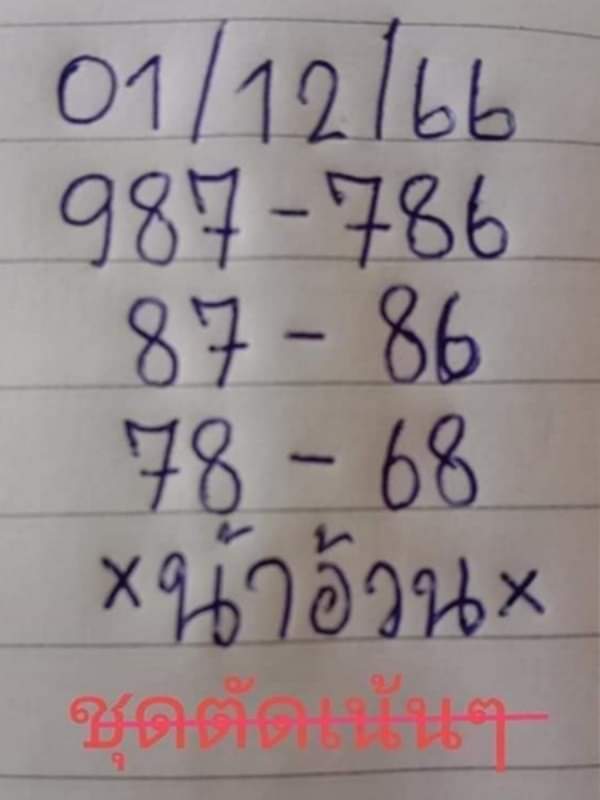 01/12/66
987-786
87 - 86
78 - 68
×น้าอ้วน×
ชุดตัดเน้นๆ